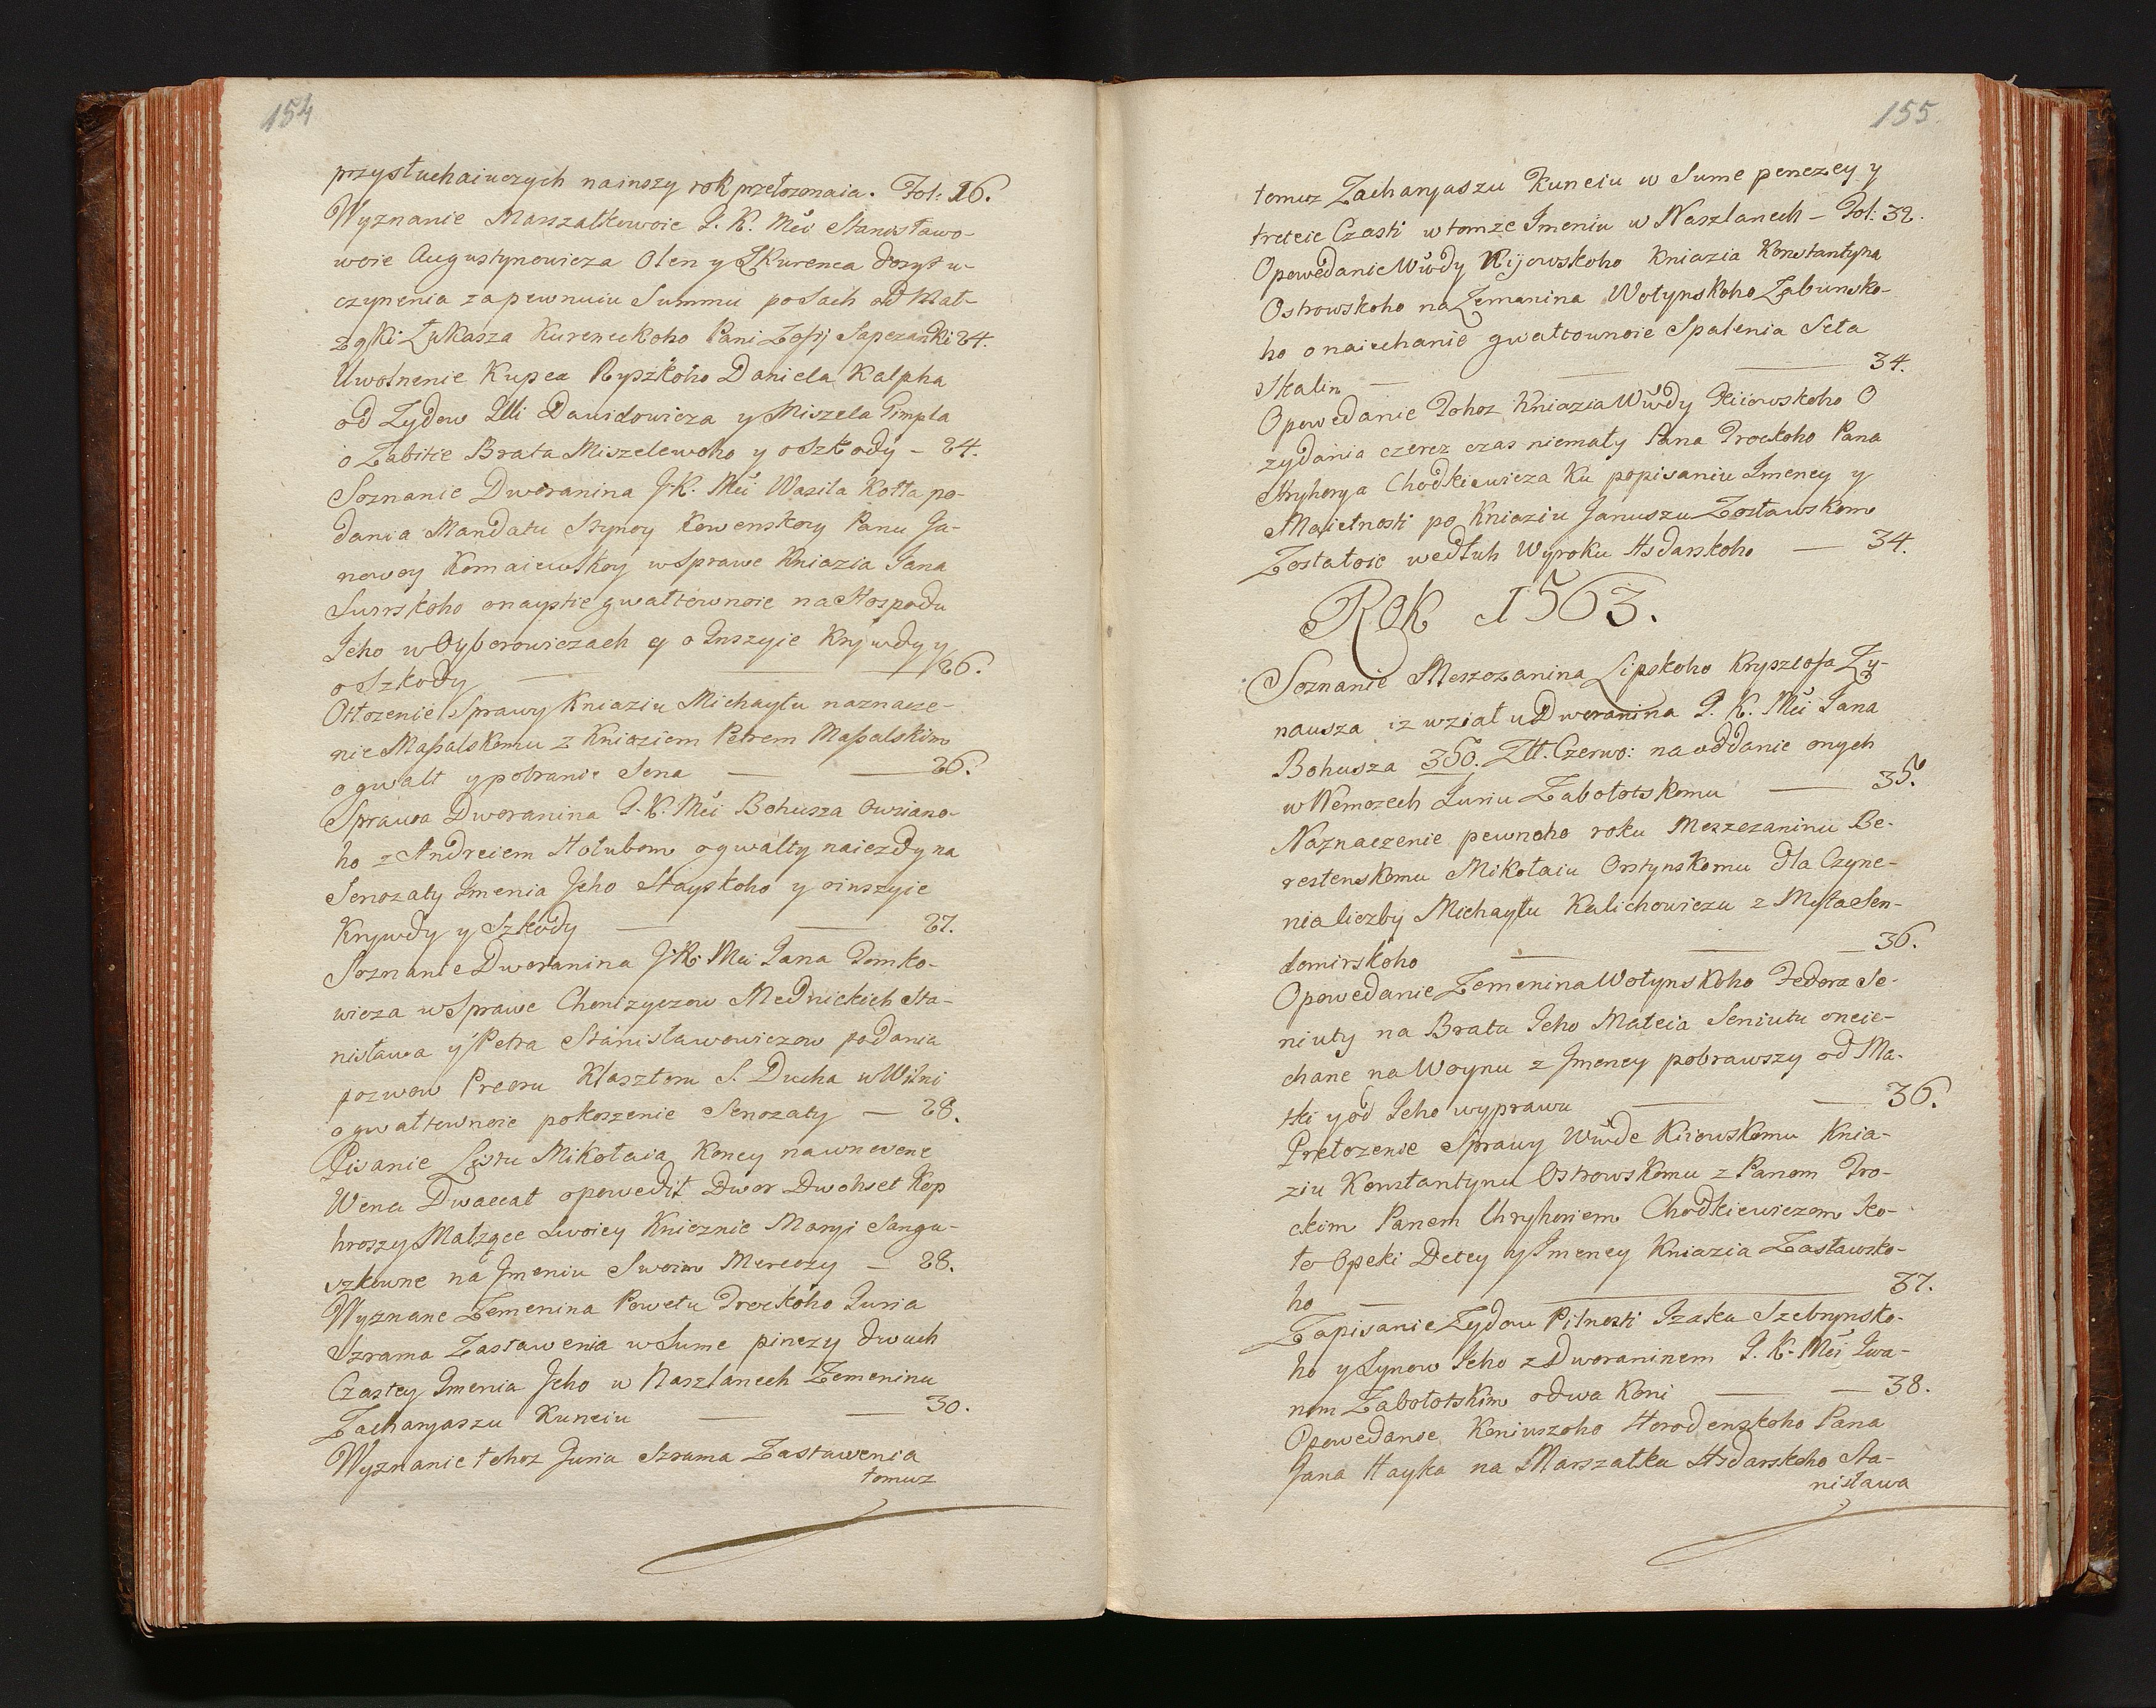 154
przysłuchaiuczych nainszy rok przełozonaia. Fol: 16.
Wyznanie Marszałkowoie J. K. Mći Stanisławo-
woie Augustynowicza Olen y Skurenca dosyt u-
czynenia za pewnuiu Summu posach od Mał-
żąki Łukasza Kureneckoho Pani Zofij Sapezanki 24.
Uwolnenie Kupca Ryszkoho Daniela Kalpha
od Zydow Illi Dawidowicza y Miszela Gimpla
o Zabitie Brata Miszelewoho y o Szkody – 24.
Soznanie Dworanina J. K. Mći Wasila Kotła po-
dania Mandatu Stynoy Kowenskoy Panu Ja-
nowoy Komaiewskoy w Sprawe Kniazia Jana
Surskoho o nayście gwałtownoie na Hospodu
Jeho w Oyborowiczach y o Inszyie Krywdy y
o Szkody — — 26.
Otłozenie Sprawy Kniaziu Michayłu naznacze-
nie Masalskomu z Kniaziem Petrem Masalskim
o gwałt y pobranie Sena — — 26.
Sprawa Dworanina J. K. Mći Bohusza Owsiano-
ho z Andreiem Hołubom o gwałty naiezdy na
Senozaty Imenia Jeho Stayskoho y o inszyie
Krywdy y Szkody — — 27.
Soznanie Dworanina J. K. Mći Jana Tomko-
wicza w Sprawe Chorizyczow Mednickich Sta-
nisława y Petra Stanisławowiczow podania
pozwow Preoru Klasztoru S. Ducha u Wilni
o gwałtownoie pokoszenie Senozaty — 28.
Pisanie Listu Mikołaia Koncy na wnesene
Wena Dwaccat opowedit Dwor Dwohset Kop
hroszy Małżące Swoiey Knieznie Maryi Sangu-
szkowne na Imeniu Swoim Mereczy — 28.
Wyznane Zemenina Powetu Trockoho Juria
Szrama Zastawenia w Sume pinezy dwuch
Czastey Imenia Jeho w Naszlanech Zemeninu
Zacharyaszu Kunciu — — 30.
Wyznanie tohoz Juria Szrama Zastawenia
tomuz
155.
tomuz Zacharyaszu Kunciu w Sume penezey y
treteie Czasti w tomze Imeniu w Naszlanech – Fol: 32.
Opowedanie Wwdy Kijowskoho Kniazia Konstantyna
Ostrowskoho na Zemanina Wołynskoho Łabunsko-
ho o naiechanie gwałtownoie Spalenia Seła
Skalin — — — 34.
Opowedanie Tohoz Kniazia Wwdy Kiiowskoho O
zydania czerez czas niemały Pana Trockoho Pana
Hryhorya Chodkiewicza Ku popisaniu Imeney y
Maietnosti po Kniaziu Januszu Zosławskom
Zostałosc wedłuh Wyroku Hsdarskoho — 34.
Rok 1563.
Soznanie Meszczanina Lipskoho Krysztofa Zy-
nausza iz wział u Dworanina J. K. Mći Jana
Bohusza 350. Złł. Czerwo: na oddanie onych
w Nemozech Juriu Zabołotskomu — 35.
Naznaczenie pewnoho roku Meszczaninu Be-
restenskomu Mikołaiu Orstynskomu dla Czyne-
nia liczby Michayłu Kalichowiczu z Mysta Sen-
domirskoho — — — 36.
Opowedanie Zemenina Wołynskoho Fedora Se-
niuty na Brata Jeho Mateia Seniutu o neie-
chane na Woynu z Imeney pobrawszy od Ma-
tki y od Jeho wyprawu — — 36.
Prełozenie Sprawy Wwde Kiiowskomu Knia-
ziu Konstantynu Ostrowskomu z Panom Tro-
ckim Panem Hryhoriem Chodkiewiczem ko-
ło Opeki Detey y Imeney Kniazia Zasławsko-
ho — — 37.
Zapisanie Zydow Pilnosti Izaka Szebrynsko-
ho y Synow Jeho z Dworaninem J. K. Mći Iwa-
nom Zabołotskim o dwa Koni — — 38.
Opowedanoe Koniuszoho Horodenskoho Pana
Jana Hayka na Marszałka Hsdarskoho Sta-
nisława